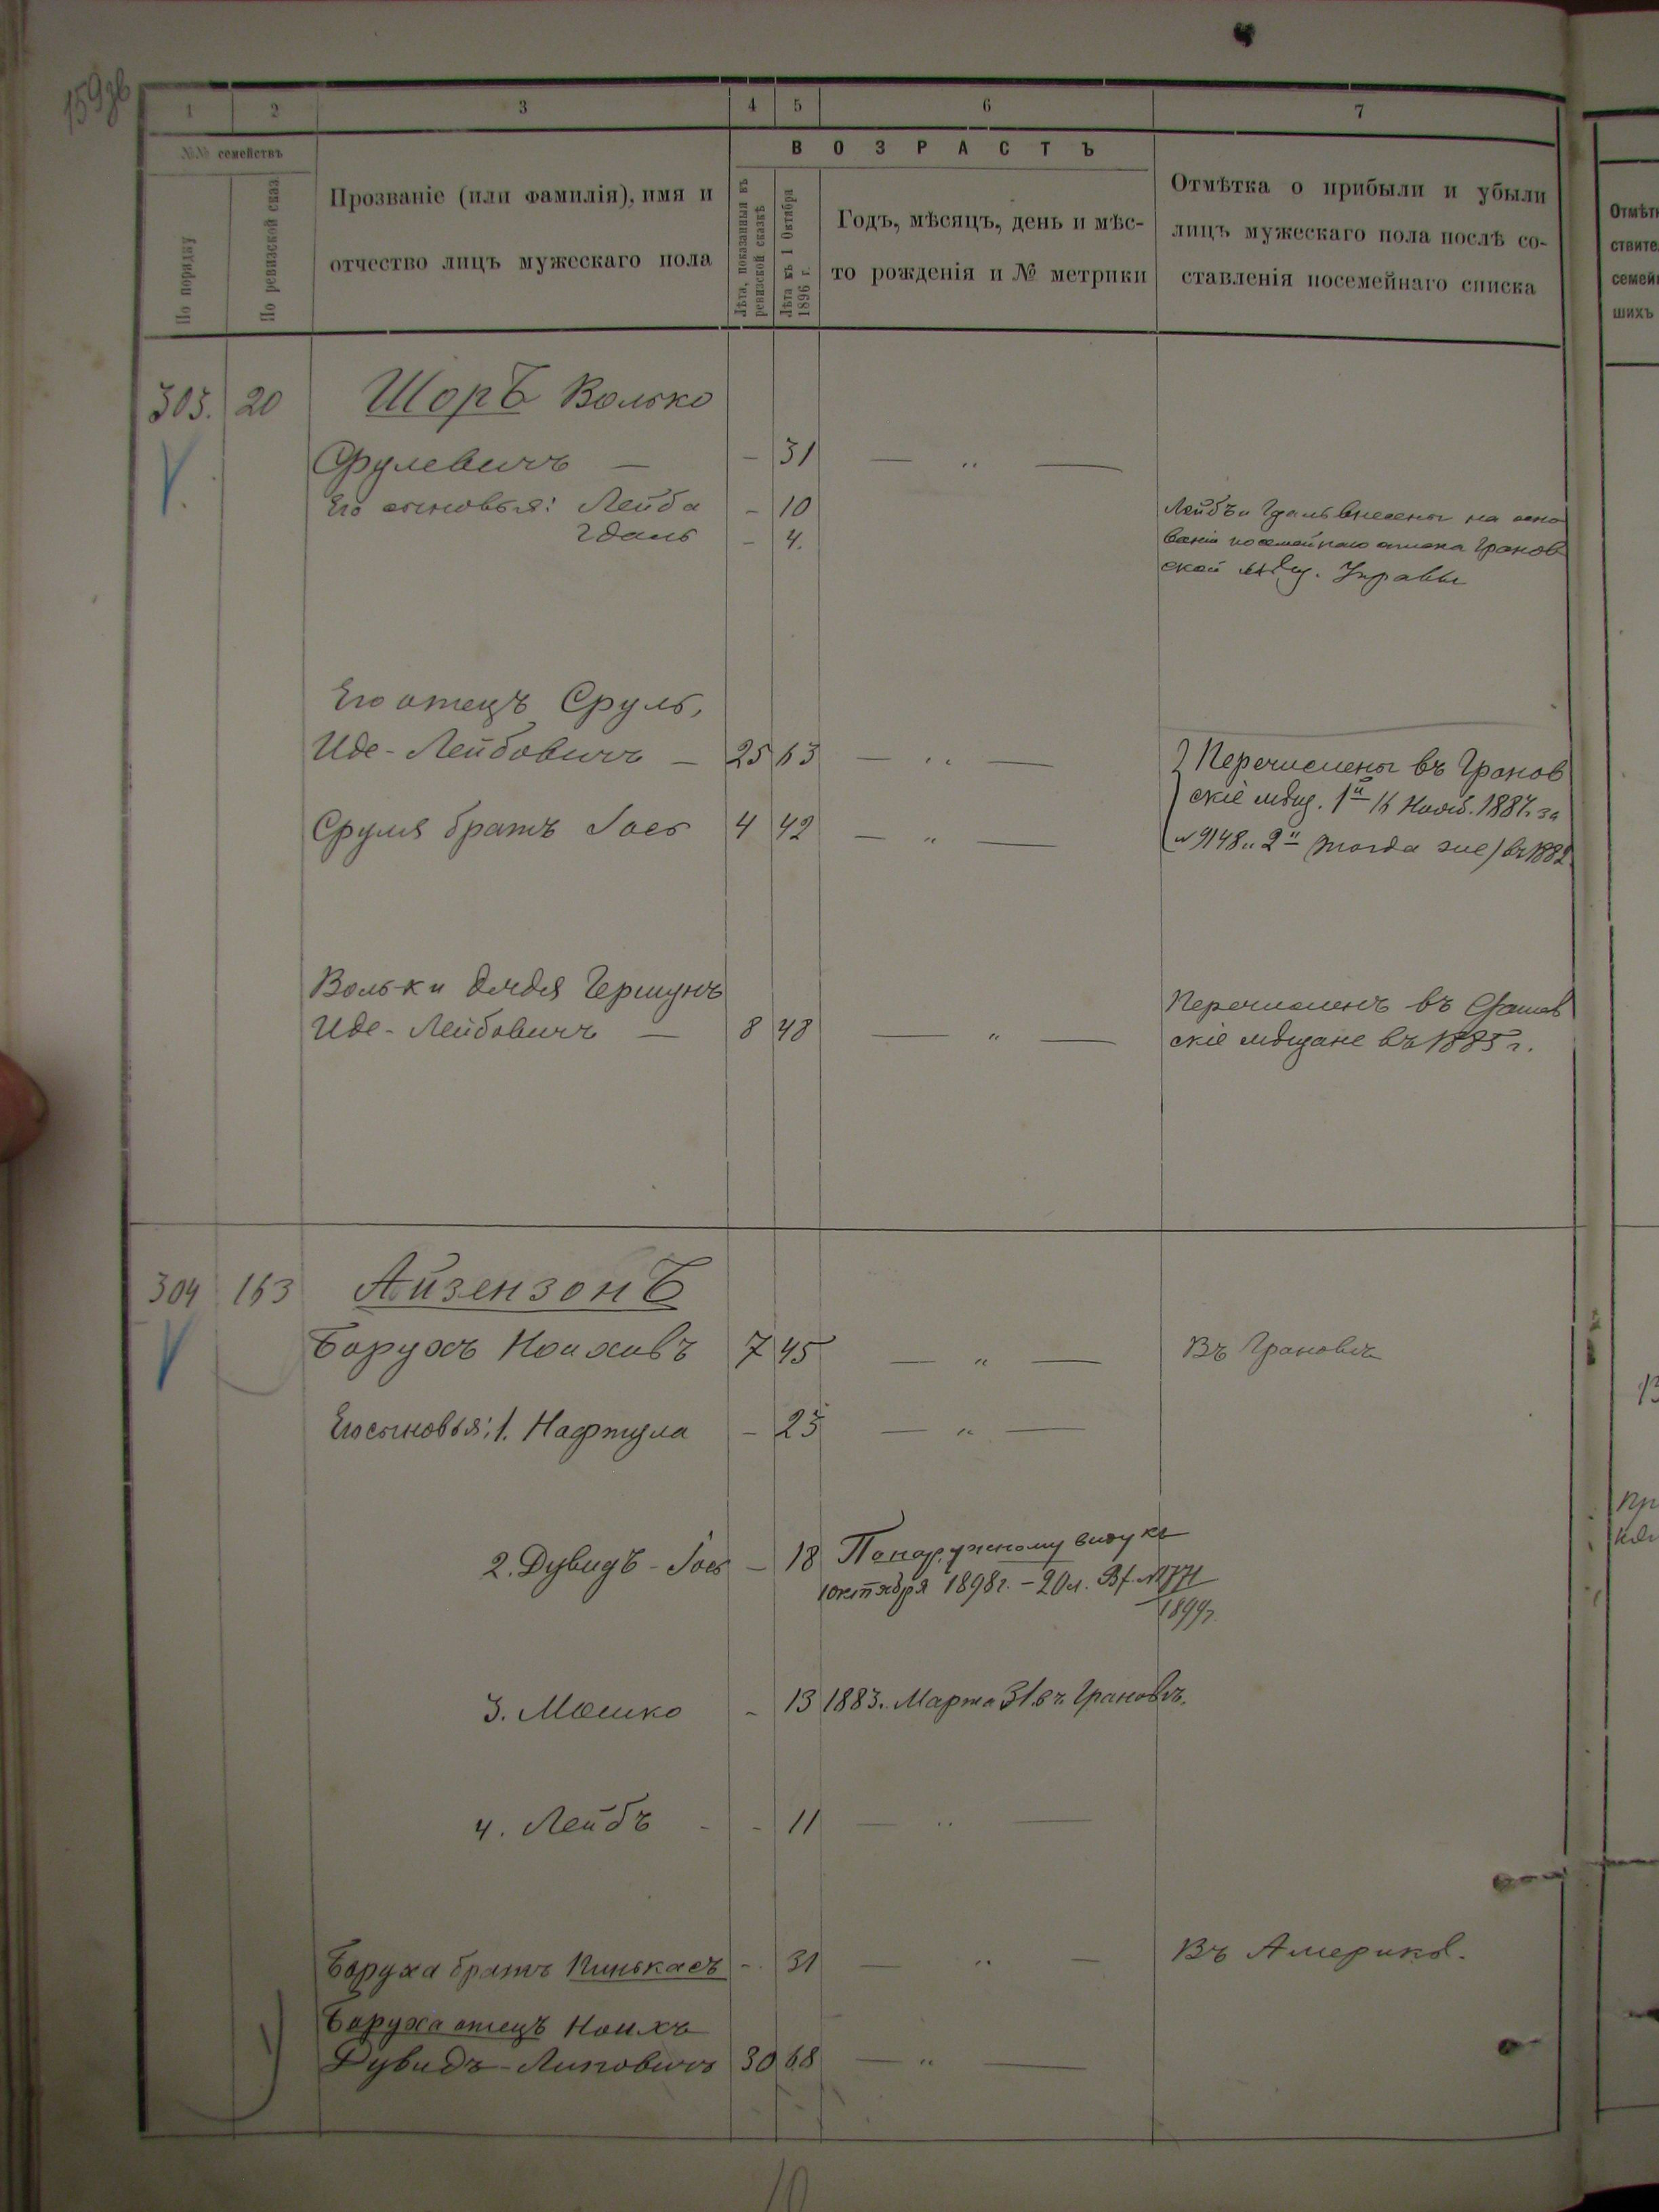 159об
1 2 3 4 5 6 7
№№ семействъ
По порядку
По ревизской сказ.
Прозваніе (или фамилія), имя и
отчество лицъ мужескаго пола
ВОЗРАСТЪ
Лѣта, показанныя въ
ревизской сказкѣ
Лѣта къ 1 Октября
1896 г.
Годъ, мѣсяцъ, день и мѣс-
то рожденія и № метрики
Отмѣтка о прибыли и убыли
лицъ мужескаго пола послѣ со-
ставленія посемейнаго списка
303. 20 Шоръ Волько
Срулевичъ — - 31 — „ —
Его сыновья: Лейба - 10
Гдаль - 4.
Лейбъ и Гдаль внесены на осно
ваніи посемейнаго списка Гранов
ской мѣщ. Управы
Его отецъ Сруль,
Иде-Лейбовичъ — 25 63 — „ —
Сруля братъ Іось 4 42 — „ —
Перечислены въ Гранов
скіе мѣщ. 1й 16 Нояб. 1887 г. за
№ 9148 и 2й (тогда же) въ 1882
Вольки дядя Гершунъ
Иде-Лейбовичъ — 8 48 — „ —
Перечисленъ въ
скіе мѣщане въ 1885 г.
304 163 Айзензонъ
Борухъ Ноиховъ 7 45 — „ — Въ Грановѣ
Его сыновья: 1. Нафтула - 25 — „ —
2. Дувидъ-Іось - 18 По наружному виду къ
1 октября 1898 г. - 20 л. № 1771
1899 г.
3. Мошко - 13 1883. Марта 31. въ Грановѣ.
4. Лейбъ - - 11 — „ —
Боруха братъ Пинькасъ - 31 — „ — Въ Америкѣ.
Боруха отецъ Ноихъ
Дувидъ-Липовичъ 30 68 — „ —
10
Отмѣтк
ствите
семей
шихъ